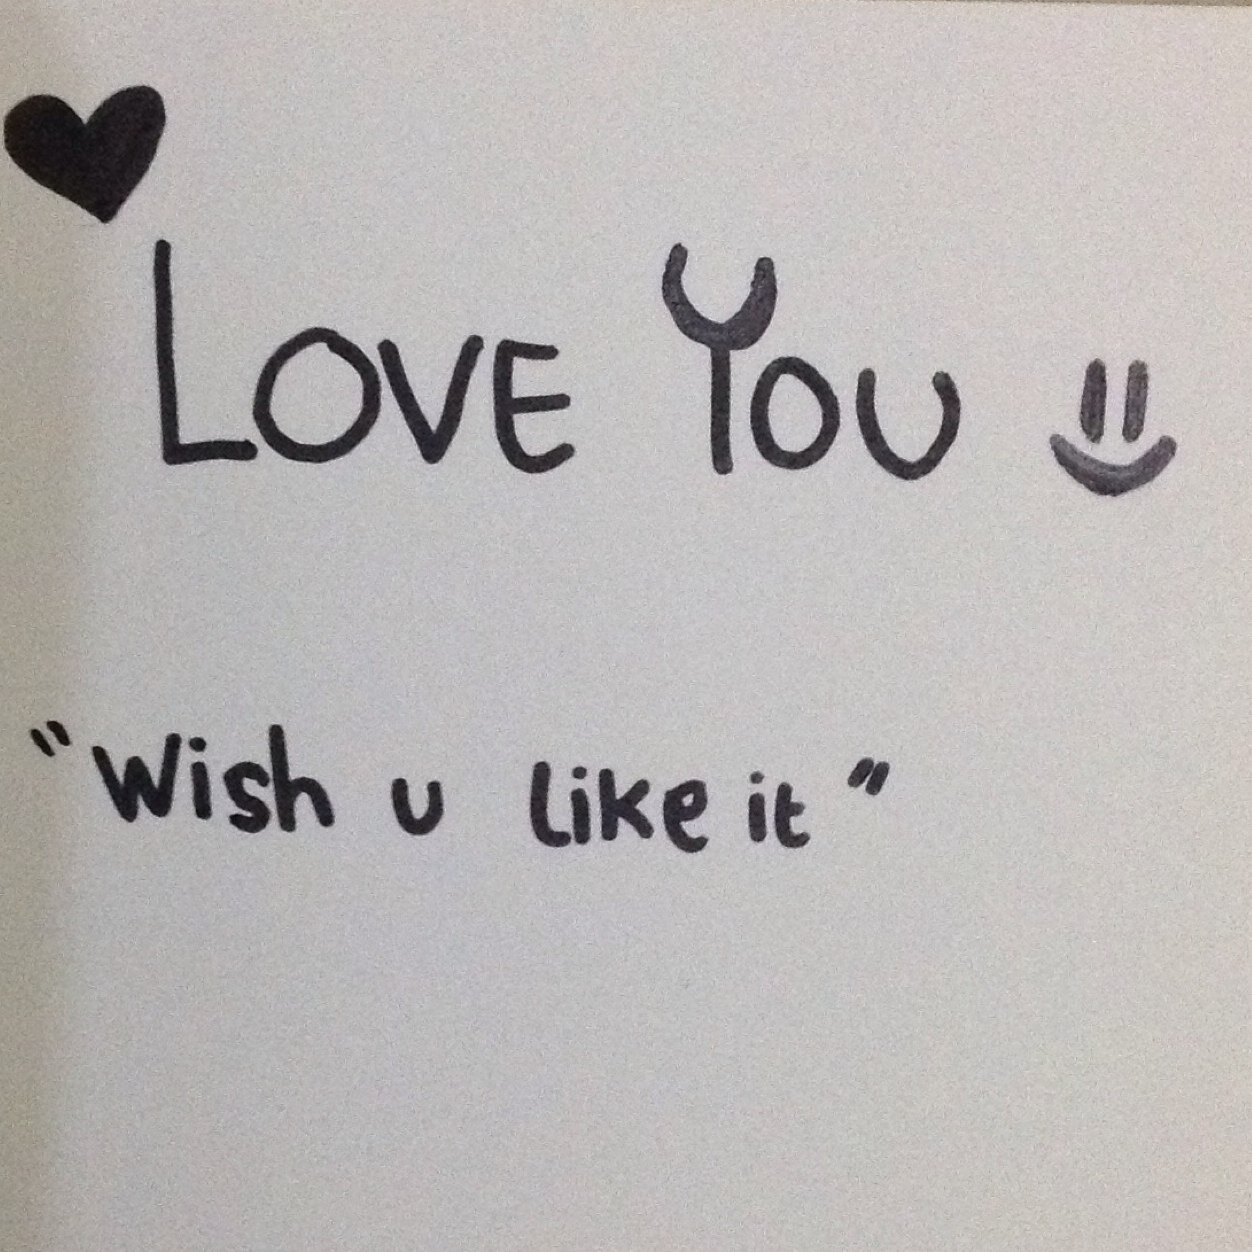 LOVE YOU
"Wish u like it"